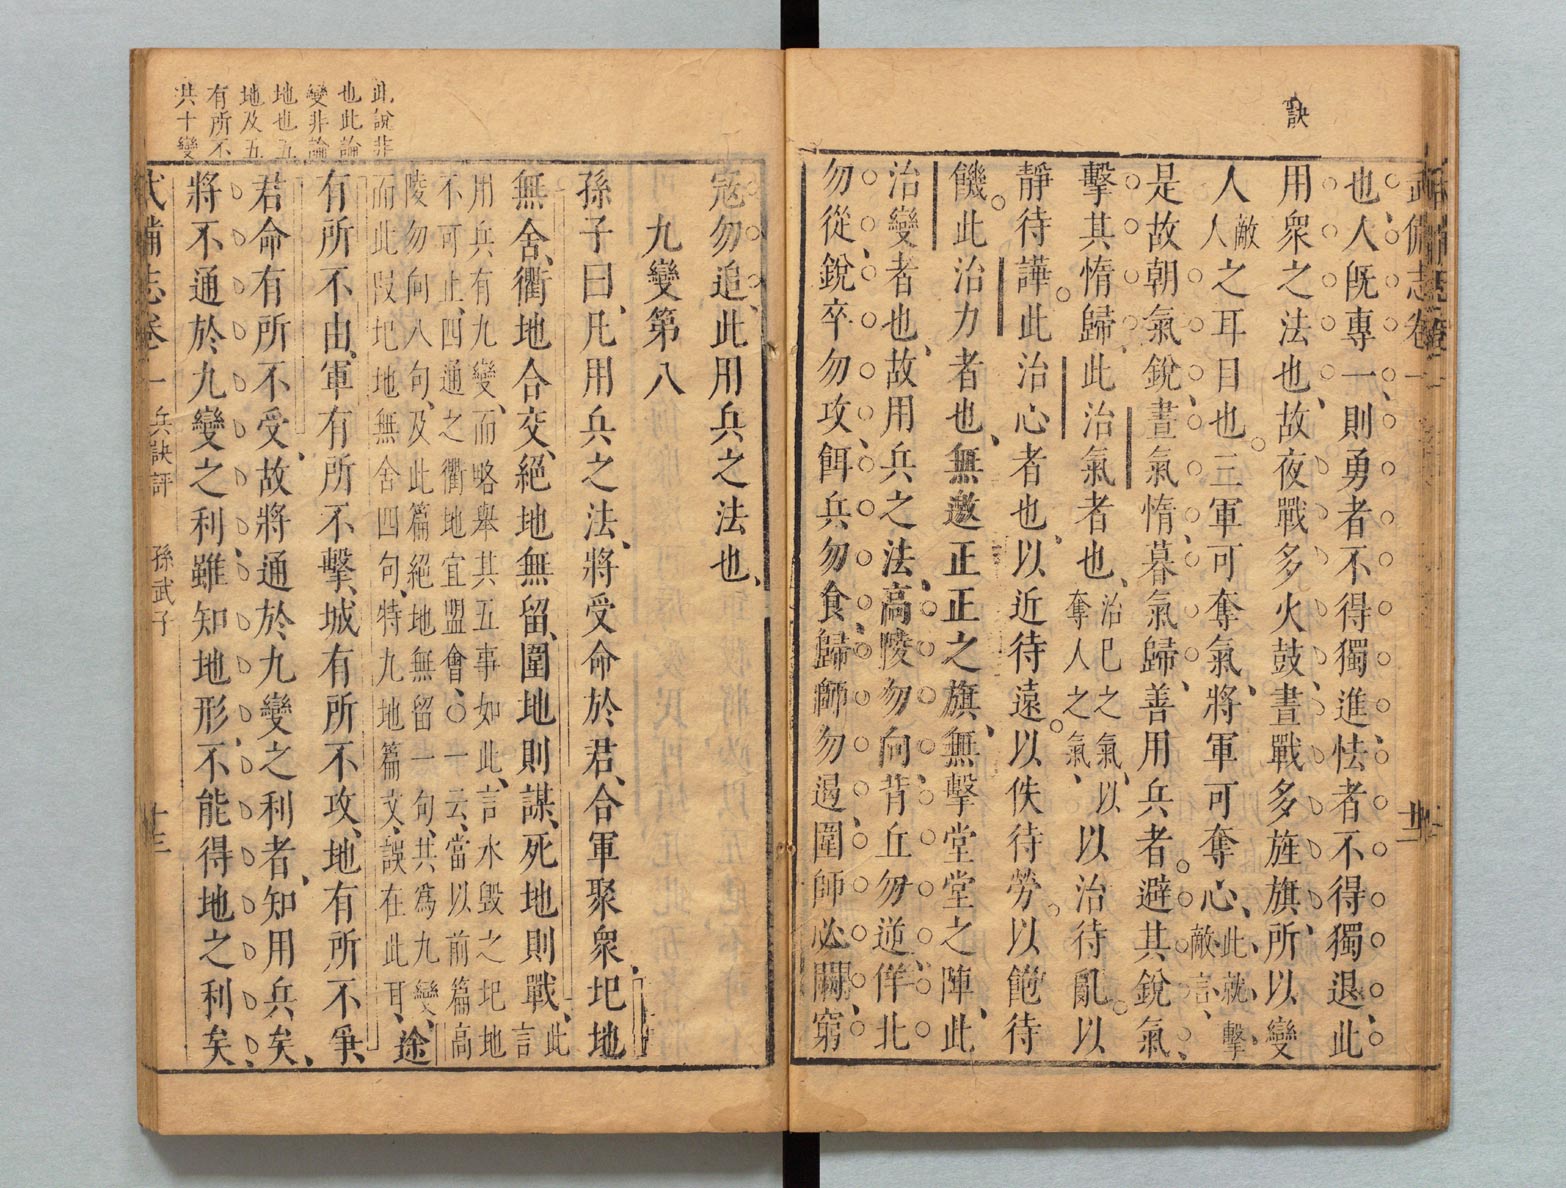 訣
武備志卷一
也人旣專一則勇者不得獨進怯者不得獨退此
用衆之法也故夜戰多火鼓晝戰多旌旗所以變
人敵人之耳目也三軍可奪氣將軍可奪心此就擊敵言
是故朝氣銳晝氣惰暮氣歸善用兵者避其銳氣
擊其惰歸此治氣者也治己之氣以奪人之氣以治待亂以
靜待譁此治心者也以近待遠以佚待勞以飽待
饑此治力者也無邀正正之旗無擊堂堂之陣此
治變者也故用兵之法高陵勿向背丘勿逆佯北
勿從銳卒勿攻餌兵勿食歸師勿遏圍師必闕窮
寇勿追此用兵之法也
九變第八
孫子曰凡用兵之法將受命於君合軍聚衆圮地
無舍衢地合交絕地無留圍地則謀死地則戰此言
用兵有九變而略舉其五事如此言水毀之圮地
不可止四通之衢地宜盟會○一云當以前篇高
陵勿向八句及此篇絕地無留一句共爲九變
而此叚圮地無舍四句特九地篇文誤在此耳途
有所不由軍有所不擊城有所不攻地有所不爭
君命有所不受故將通於九變之利者知用兵矣
將不通於九變之利雖知地形不能得地之利矣
此說非
也此論
變非論
地也五
地及五
有所不
共十變
武備志卷一 兵訣評 孫武子 十三